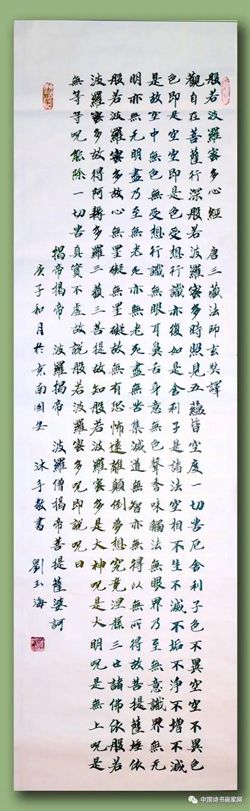 般若波羅蜜多心經 唐三藏法師玄奘譯
觀自在菩薩行深般若波羅蜜多時照見五蘊皆空度一切苦厄舍利子色不異空空不異色
色即是空空即是色受想行識亦復如是舍利子是諸法空相不生不滅不垢不淨不增不減
是故空中無色無受想行識無眼耳鼻舌身意無色聲香味觸法無眼界乃至無意識界無無
明亦無無明盡乃至無老死亦無老死盡無苦集滅道無智亦無得以無所得故菩提薩埵依
般若波羅蜜多故心無罣礙無罣礙故無有恐怖遠離顛倒夢想究竟涅槃三世諸佛依般若
波羅蜜多故得阿耨多羅三藐三菩提故知般若波羅蜜多是大神呪是大明呪是無上呪是
無等等呪能除一切苦真實不虛故說般若波羅蜜多呪即說呪曰
揭帝揭帝 波羅揭帝 波羅僧揭帝菩提薩婆訶
庚子和月於京南固安 沐手敬書 劉玉海
中国诗书画家网